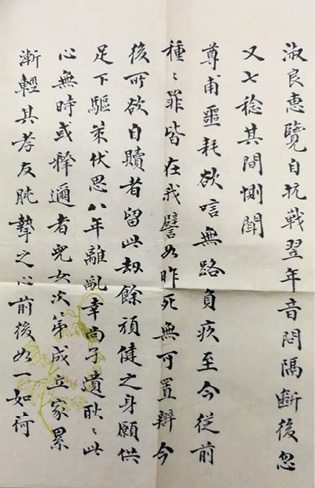 淑良惠覽自抗戰翌年音問隔斷後忽
又七稔其間惻聞
尊甫噩耗欲唁無路負疚至今從前
種〻罪皆在我譬如昨死無可置辯今
後所欲自贖者留此劫餘頑健之身願供
足下驅策伏思八年離亂幸尚孑遺耿〻此
心無時或釋邇者兒女次第成立家累
漸輕其孝友肫摯之心前後如一如荷